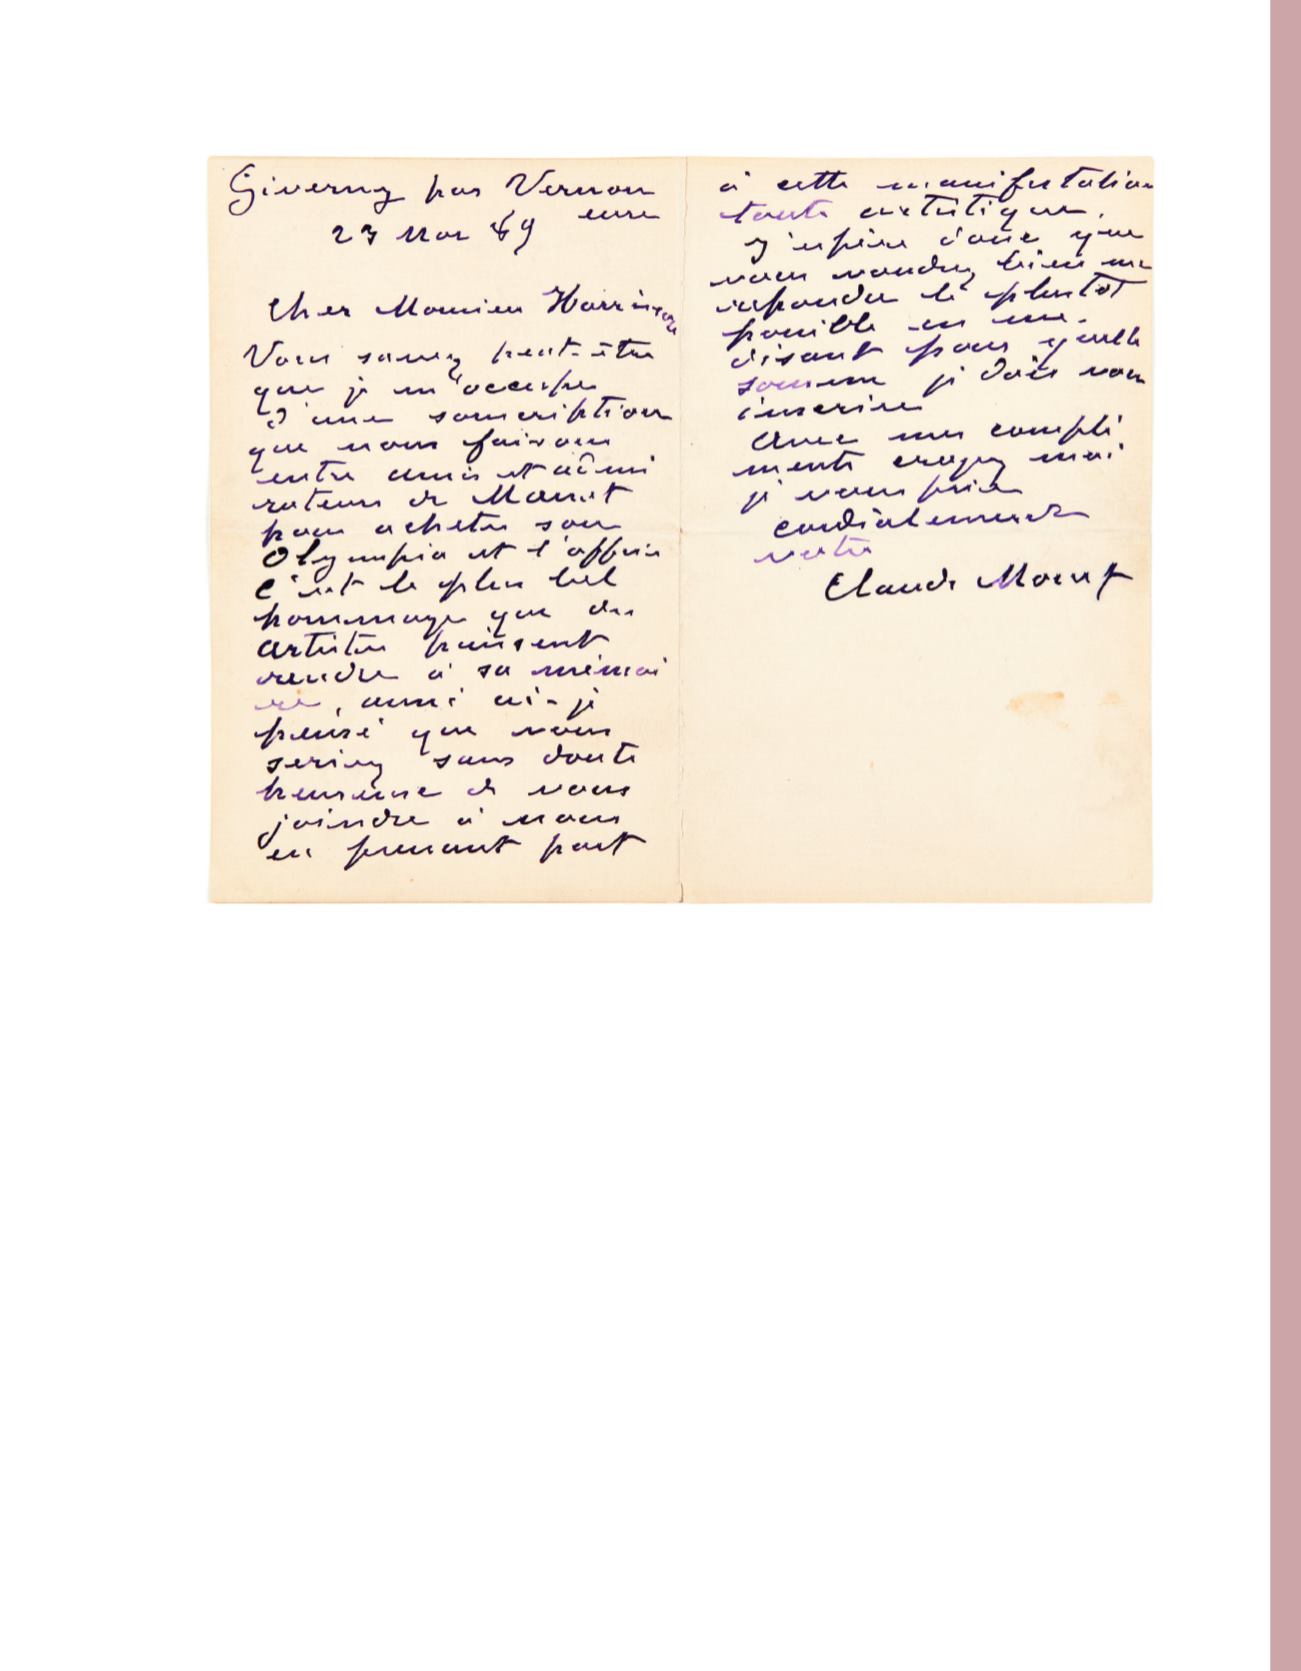 Giverny par Vernon
eure
23 Nov 89
Cher Monsieur Harrison
Vous savez peut-être
que je m'occupe
d'une souscription
que nous faisons
entre amis et admi
rateurs de Manet
pour acheter son
Olympia et l'offrir
c'est le plus bel
hommage que des
artistes puissent
rendre à sa mémoi
re, aussi ai-je
pensé que vous
seriez sans doute
heureux de vous
joindre à nous
en prenant part
à cette manifestation
toute artistique.
J'espère donc que
vous voudrez bien me
repondre le plustôt
possible en me
disant pour quelle
somme je dois vous
inscrire
Avec mes compli
ments croyez moi
je vous prie
cordialement
votre
Claude Monet